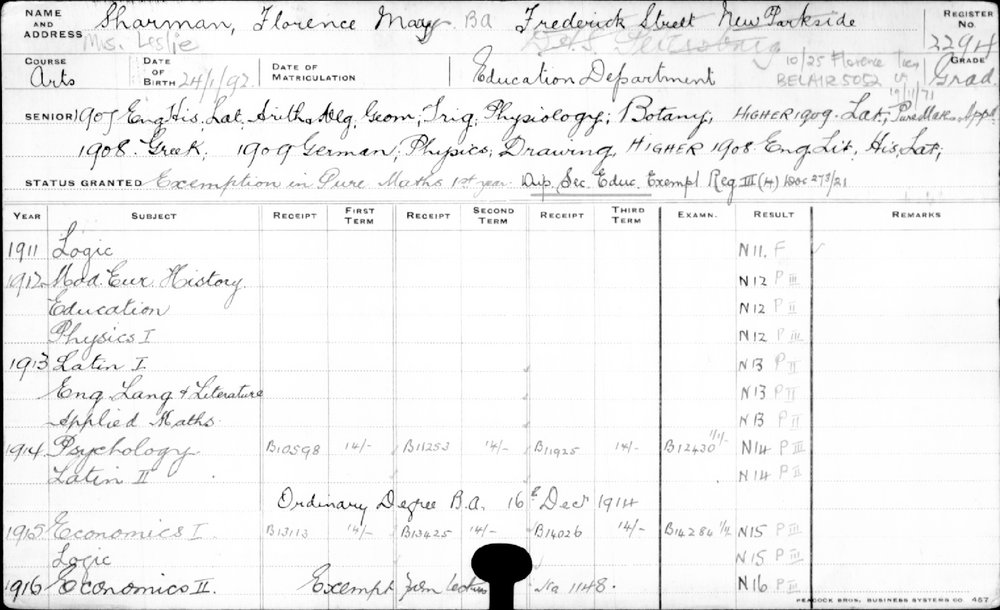 NAME AND ADDRESS Sharman, Florence May BA Frederick Street New Parkside REGISTER No. 2294
Mrs. Leslie
COURSE Arts DATE OF BIRTH 24/1/92. DATE OF MATRICULATION Education Department 10/25 Florence BELAIR 5052 19/11/71 GRADE Grad.
SENIOR 1907 Eng. His, Lat, Arith, Alg, Geom; Trig; Physiology; Botany; HIGHER 1909. Lat; Pure Math. Appl.
1908. Greek; 1909 German; Physics; Drawing, HIGHER 1908. Eng. Lit, His, Lat;
STATUS GRANTED Exemption in Pure Maths 1st year. Dip. Sec. Educ. Exempt Reg III (4) Doc 273/21
YEAR SUBJECT RECEIPT FIRST TERM RECEIPT SECOND TERM RECEIPT THIRD TERM EXAMN. RESULT REMARKS
1911 Logic N11. F ✓
1912 Mod. Eur. History. N12 P III
Education N12 P II
Physics I N12 P III
1913 Latin I N13 P II
Eng. Lang & Literature N13 P II
Applied Maths. N13 P II
1914 Psychology B10598 14/- B11253 14/- B11925 14/- B12430 1/1/- N14 P III
Latin II N14 P II
Ordinary Degree B.A. 16th Decr 1914
1915 Economics I B13113 14/- B13425 14/- B14026 14/- B14284 1/1/- N15 P III
Logic N15 P III
1916 Economics II Exempt from lectures No 1148. N16 P II
PEACOCK BROS. BUSINESS SYSTEMS CO. 457